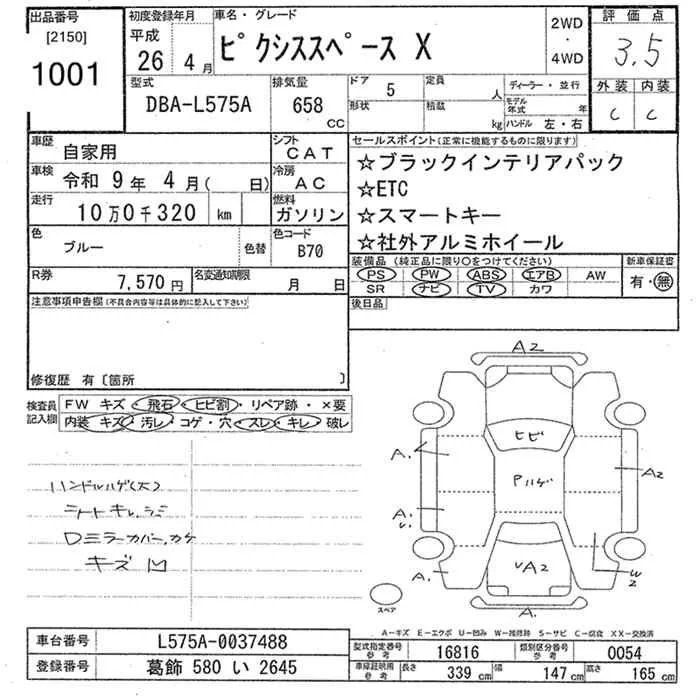 出品番号
[2150]
1001
初度登録年月
平成
26年 4月
車名・グレード
ピクシススペース X
2WD
・
4WD
評価点
3.5
外装 内装
C C
型式
DBA-L575A
排気量
658
CC
ドア 5
定員 人
形状
積載 kg
ディーラー・並行
モデル年式 年
ハンドル 左・右
車歴 自家用
シフト CAT
車検 令和 9年 4月( 日)
冷房 AC
走行 10万0千320 km
燃料 ガソリン
色 ブルー
色替
色コード B70
R券 7,570円
名変通知期限 月 日
セールスポイント(正常に機能するものに限ります)
☆ブラックインテリアパック
☆ETC
☆スマートキー
☆社外アルミホイール
装備品 (純正品に限り〇をつけてください)
PS PW ABS エアB AW
SR ナビ TV カワ
新車保証書
有・無
後日品
注意事項申告欄(不具合内容等は具体的に記入して下さい)
修復歴 有〔箇所 〕
検査員記入欄
FW キズ・飛石・ヒビ割・リペア跡・×要
内装 キズ・汚レ・コゲ・穴・スレ・キレ・破レ
ハンドルハゲ(大)
シートキレ,シミ
Dミラーカバー,カケ
キズ凹
A2
ヒビ
A.
Pハゲ
A2
A.
U.
A.
VA2
W2
A.
スペア
A-キズ E-エクボ U-凹み W-補修跡 S-サビ C-腐食 XX-交換済
車台番号 L575A-0037488
登録番号 葛飾 580 い 2645
型式指定番号 参考 16816
類別区分番号 参考 0054
車庫証明用 参考
長さ 339 cm
幅 147 cm
高さ 165 cm